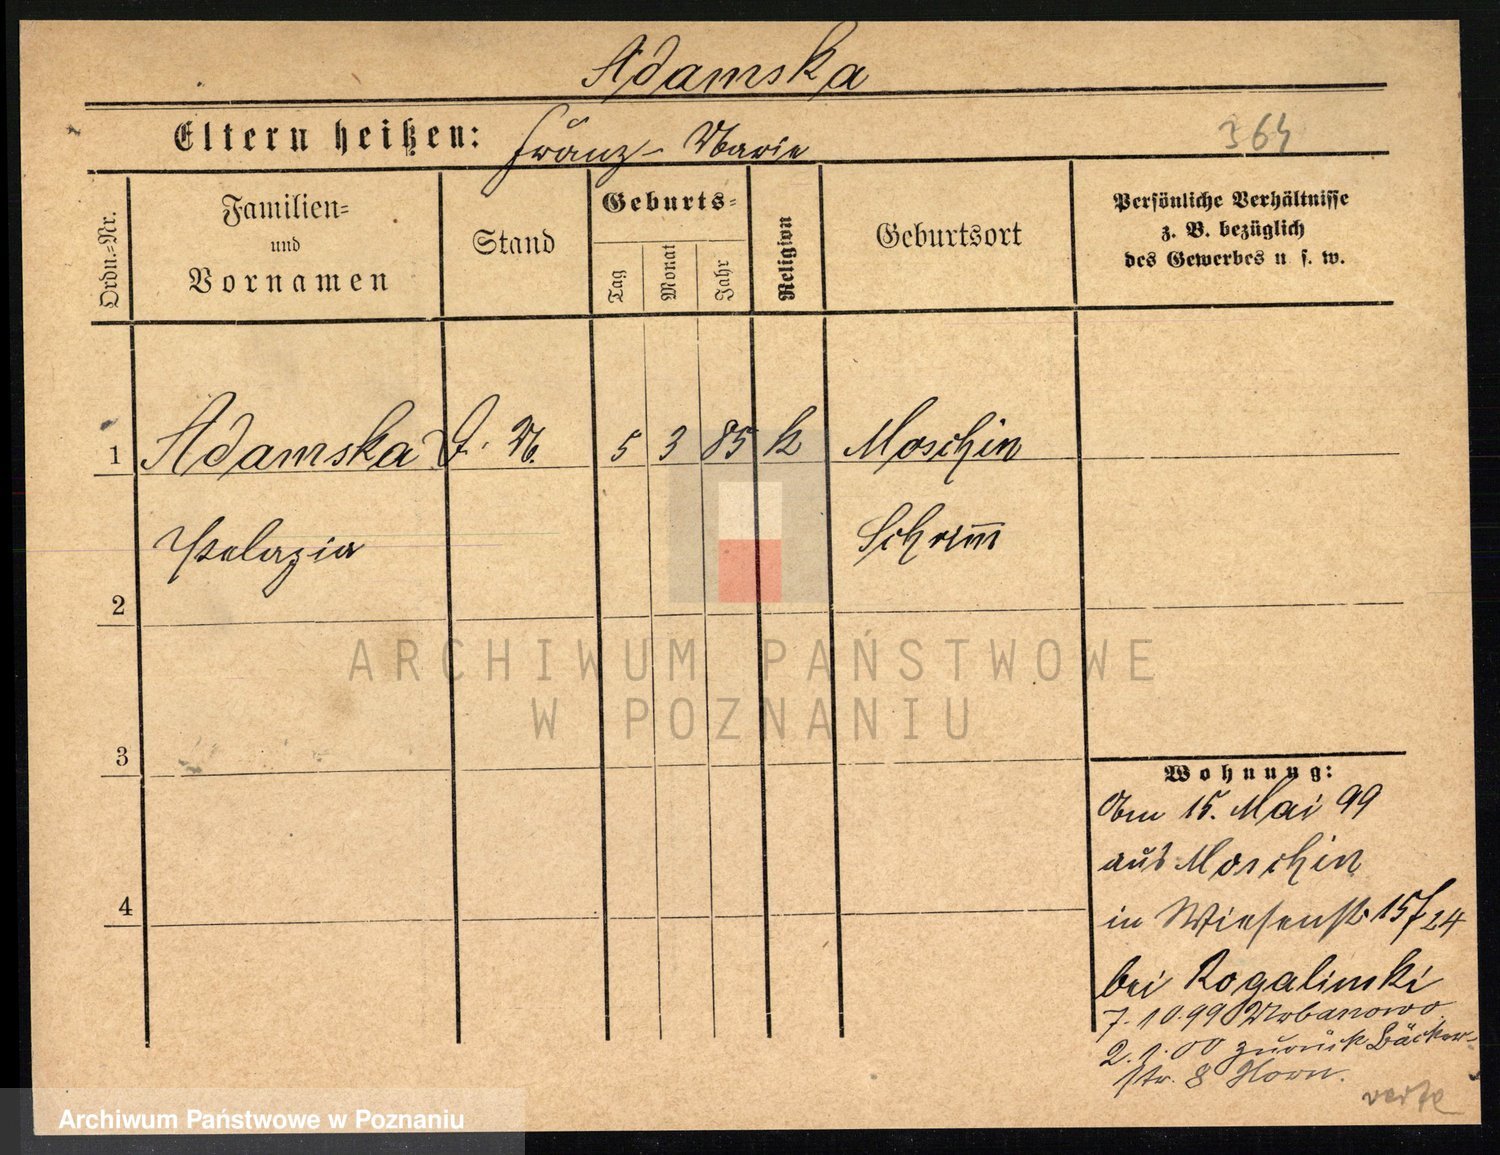 Adamska
Eltern heißen: Franz - Marie
364
Ordn.=Nr.
Familien=
und
Vornamen
Stand
Geburts=
Tag
Monat
Jahr
Religion
Geburtsort
Persönliche Verhältnisse
z. B. bezüglich
des Gewerbes u. s. w.
1 Adamska D. M. 5 3 85 k Moschin
Pelagia Schrim̅
2
3
4
ARCHIWUM PAŃSTWOWE
W POZNANIU
Wohnung:
15. Mai 99
aus Moschin
in Wiesenstr 15/24
bei Rogalinski
7.10.99 Urbanowo
2.1.00 zurück Bäcker-
str. 8 Horn.
verte
Archiwum Państwowe w Poznaniu